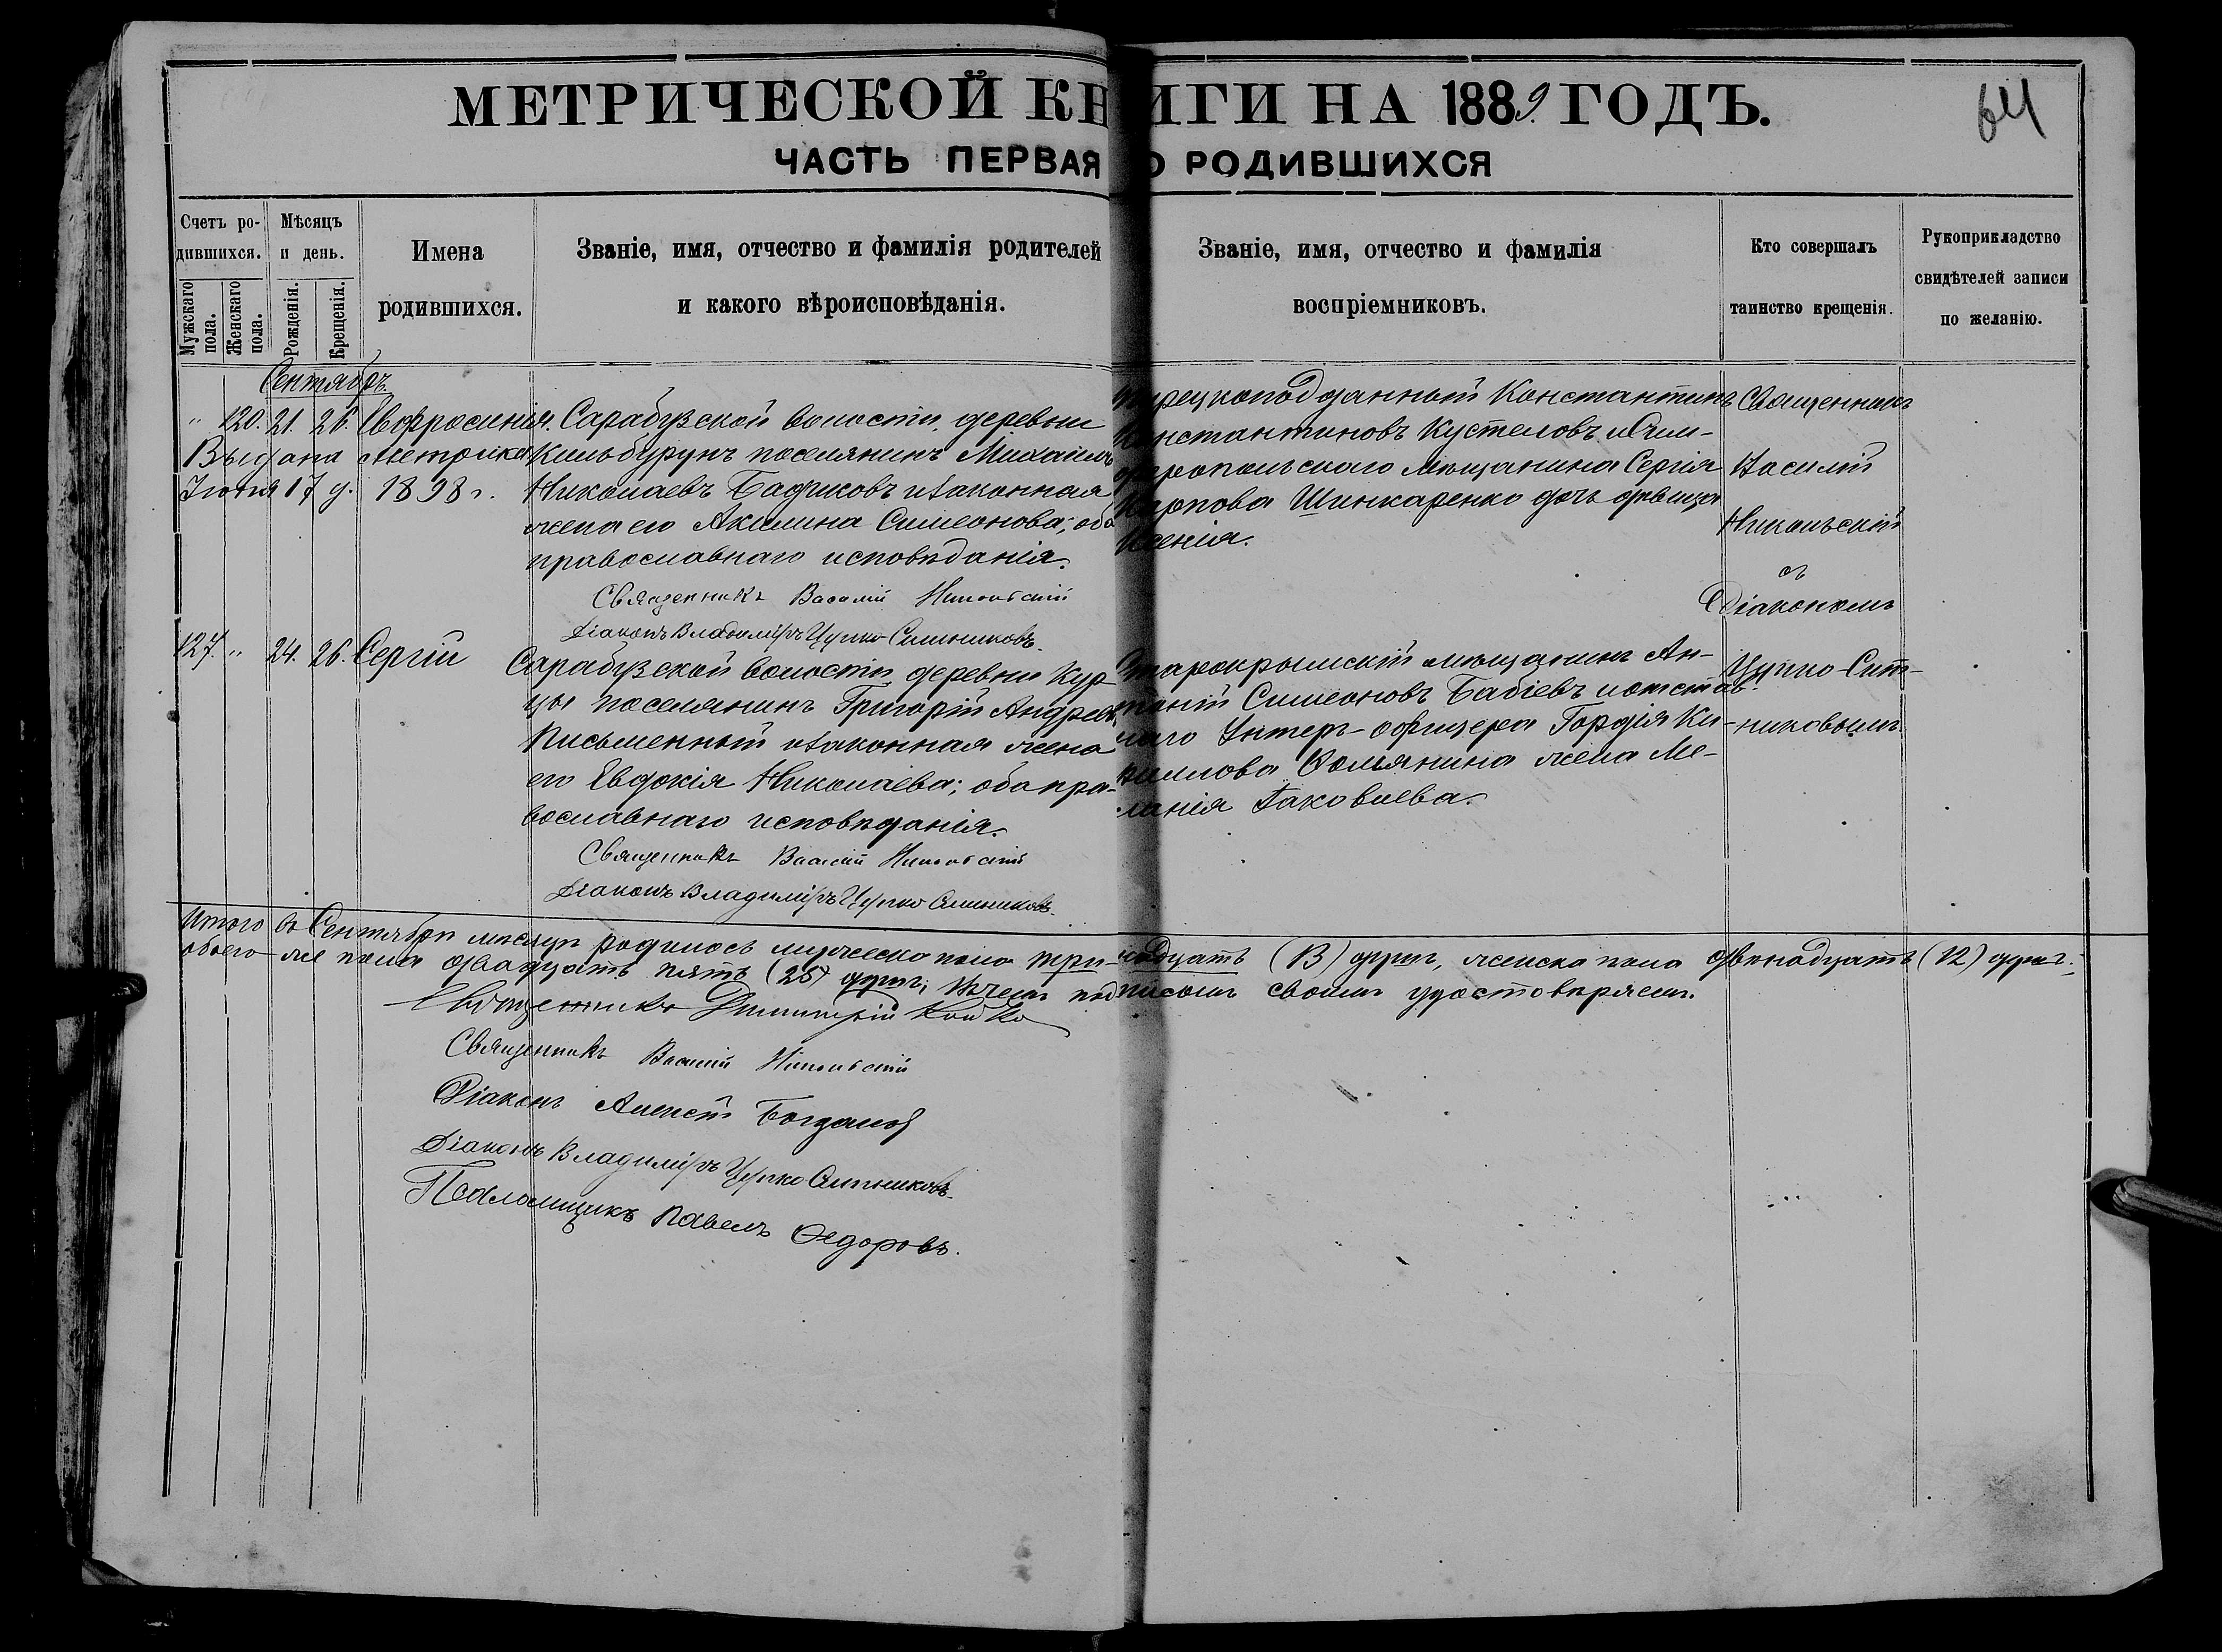 МЕТРИЧЕСКОЙ КНИГИ НА 1889 ГОДЪ.
64
ЧАСТЬ ПЕРВАЯ О РОДИВШИХСЯ
Счетъ родившихся.
Мужскаго пола.
Женскаго пола.
Мѣсяцъ и день.
Рожденія.
Крещенія.
Имена родившихся.
Званіе, имя, отчество и фамилія родителей
и какого вѣроисповѣданія.
Званіе, имя, отчество и фамилія
воспріемниковъ.
Кто совершалъ
таинство крещенія.
Рукоприкладство
свидѣтелей записи
по желанію.
Сентябрь
" 120. 21. 26. Евфросинія.
Выдана метрика
Іюня 17 д. 1898 г.
Сарабузской волости, деревни
Кильбурунъ поселянинъ Михаилъ
Николаевъ Бадриковъ и законная
жена его Акилина Симеонова; оба
православнаго исповѣданія.
Священникъ Василій Никольскій
Діаконъ Владиміръ Цупко Ситниковъ.
Турецкоподданный Константинъ
Константиновъ Кустеловъ и Сим-
феропольскаго мѣщанина Сергія
Карпова Шинкаренко дочь дѣвица
Ксенія.
Священникъ
Василій
Никольскій
съ
Діакономъ
Цупко-Сит-
никовымъ.
127. " 24. 26. Сергій
Сарабузской волости, деревни Кур-
цы поселянинъ Григорій Андреевъ
Письменный и законная жена
его Евдокія Николаева; оба пра-
вославнаго исповѣданія.
Священникъ Василій Никольскій
Діаконъ Владиміръ Цупко Ситниковъ.
Старокрымскій мѣщанинъ Ан-
тоній Симеоновъ Бабіевъ и отстав-
наго Унтеръ-офицера Гордія Ки-
риллова жена Ме-
ланія Іаковлева.
Итого въ Сентябрѣ мѣсяцѣ родилось мужеска пола три-надцать (13) душъ, женска пола двенадцать (12) душъ;
обоего же пола двадцать пять (25) душъ; въ чемъ подписомъ своимъ удостовѣряемъ.
Священникъ Димитрій Койко
Священникъ Василій Никольскій
Діаконъ Алексій Богдановъ
Діаконъ Владиміръ Цупко Ситниковъ.
Псаломщикъ Павелъ Ѳедоровъ.